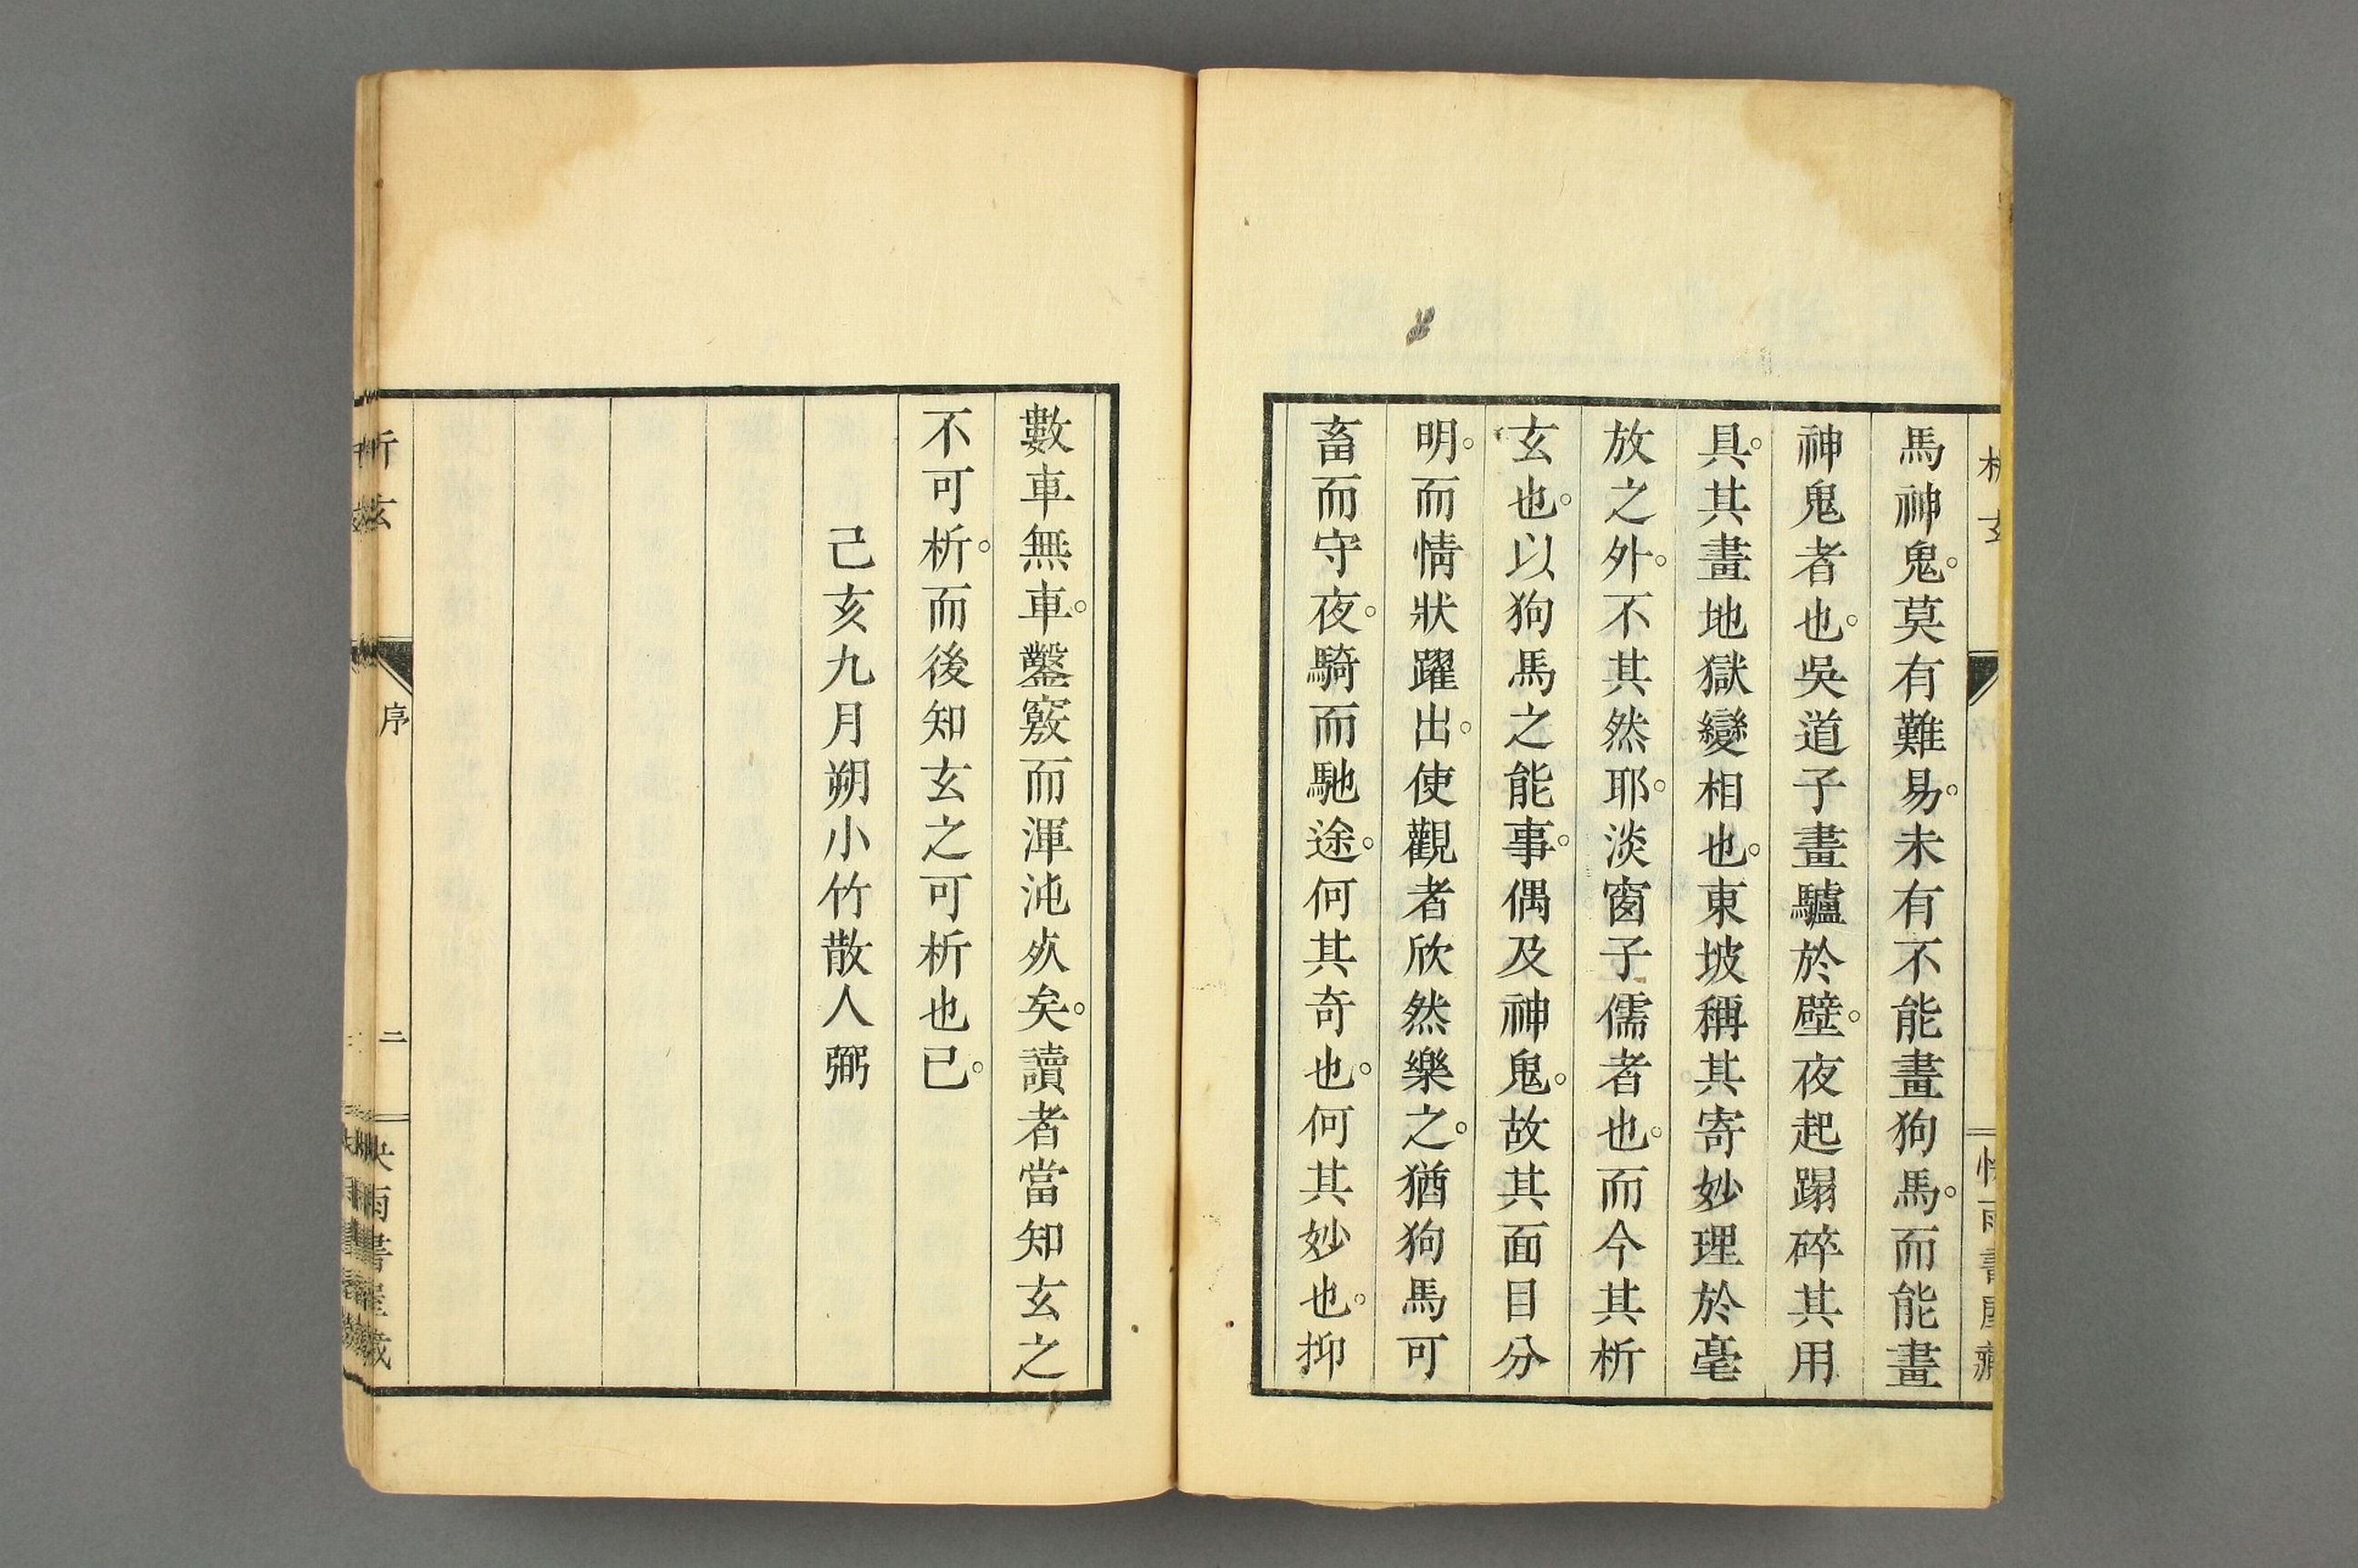 馬神鬼。莫有難易。未有不能畫狗馬。而能畫
神鬼者也。吳道子畫驢於壁。夜起蹋碎其用
具。其畫地獄變相也。東坡稱其寄妙理於毫
放之外。不其然耶。淡窗子儒者也。而今其析
玄也。以狗馬之能事。偶及神鬼。故其面目分
明。而情狀躍出。使觀者欣然樂之。猶狗馬可
畜而守夜。騎而馳途。何其奇也。何其妙也。抑
數車無車。鑿竅而渾沌㱙矣。讀者當知玄之
不可析。而後知玄之可析也已。
己亥九月朔小竹散人弼
析玄
序
二
快雨書屋藏